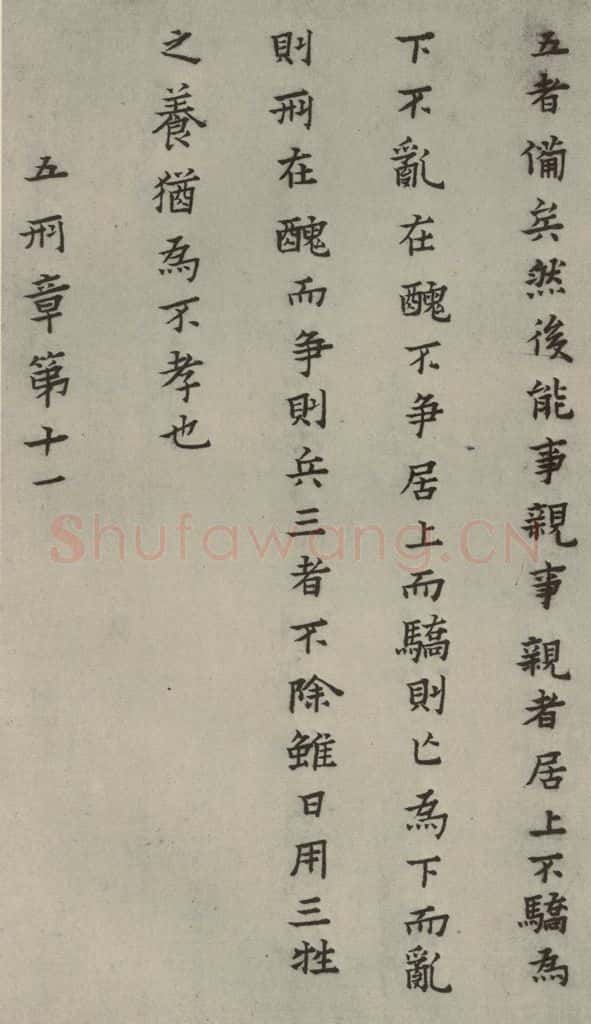 五者備矣然後能事親事親者居上不驕為
下不亂在醜不争居上而驕則亡為下而亂
則刑在醜而争則兵三者不除雖日用三牲
之養猶為不孝也
五刑章第十一
Shufawang.CN